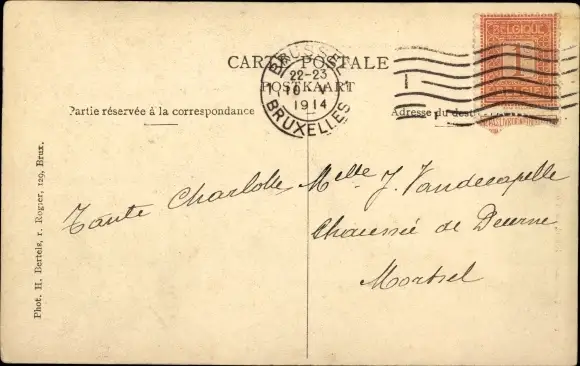 CARTE POSTALE
POSTKAART
BRUSSEL
22-23
10 V
1914
BRUXELLES
BELGIQUE
1
BELGIË
Partie réservée à la correspondance
Adresse du dest
Tante Charlotte
Melle J. Vandecapelle
Chaussée de Deurne
Mortsel
Phot. H. Bertels, r. Rogier, 129, Brux.